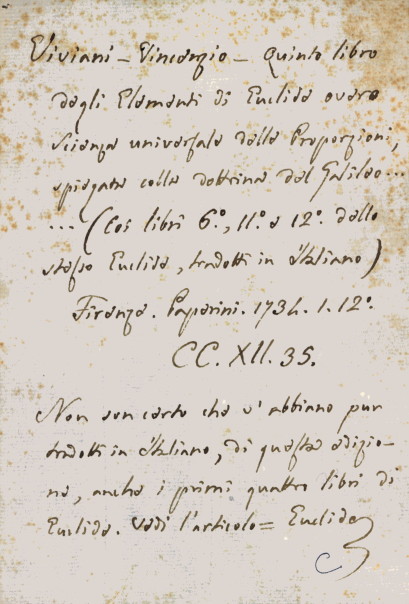 Viviani - Vincenzio - Quinto libro
degli Elementi di Euclide ovvero
scienza universale delle Proporzioni,
spiegata colla dottrina del Galileo...
... (Coi libri 6º, 11º e 12º. dello
stesso Euclide, tradotti in Italiano)
Firenze. Paperini. 1734. 1. 12º.
CC. XII. 35.
Non son certo che v'abbiano pur
tradotti in Italiano, di questa edizio-
ne, anche i primi quattro libri di
Euclide. Vedi l'articolo = Euclide